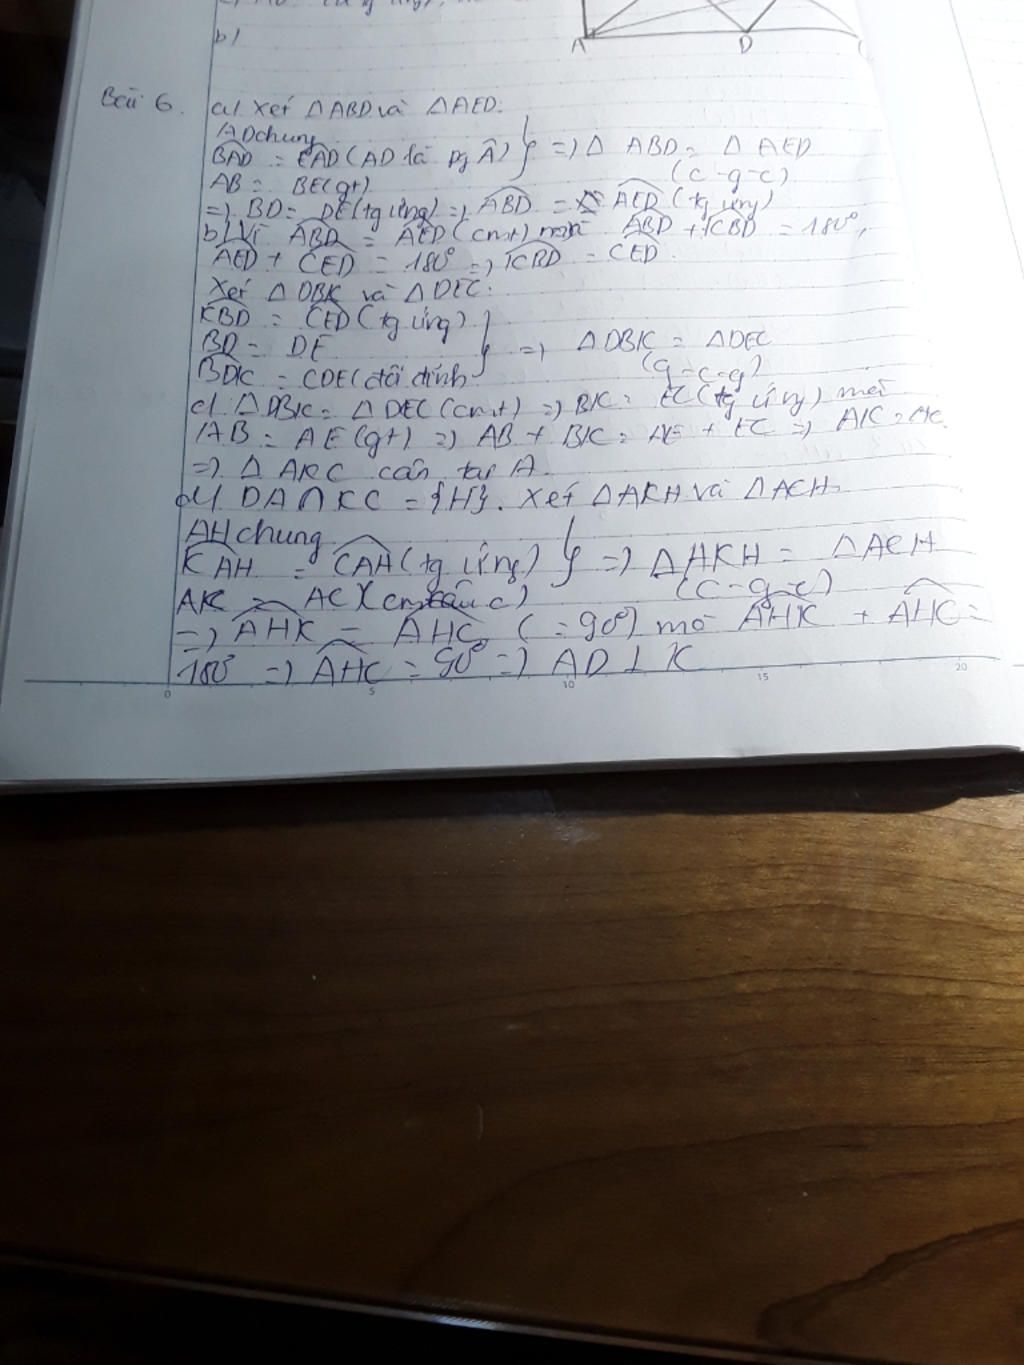 b)
A D
Bài 6. a) Xét △ABD và △AED:
AD chung
BAD = EAD (AD là pg Â) } => △ ABD = △ AED
AB = BE (gt) (c-g-c)
=> BD = DE (tg ứng) => ABD = AED (tg ứng)
b) Vì ABD = AED (cmt) mà ABD + KBD = 180°,
AED + CED = 180° => KBD = CED.
Xét △ DBK và △ DEC:
KBD = CED (tg ứng)
BD = DE } => △DBK = △DEC
BDK = CDE (đối đỉnh) (g-c-g)
c) △DBK = △DEC (cmt) => BK = EC (tg ứng) mà
AB = AE (gt) => AB + BK = AE + EC => AK = AC
=> △ AKC cân tại A.
d) DA ∩ KC = {H}. Xét △AKH và △ACH
AH chung
KAH = CAH (tg ứng) } => △AKH = △ACH
AK = AC (cm câu c) (c-g-c)
=> AHK = AHC (=90°) mà AHK + AHC =
180° => AHC = 90° => AD ⊥ K
0 5 10 15 20